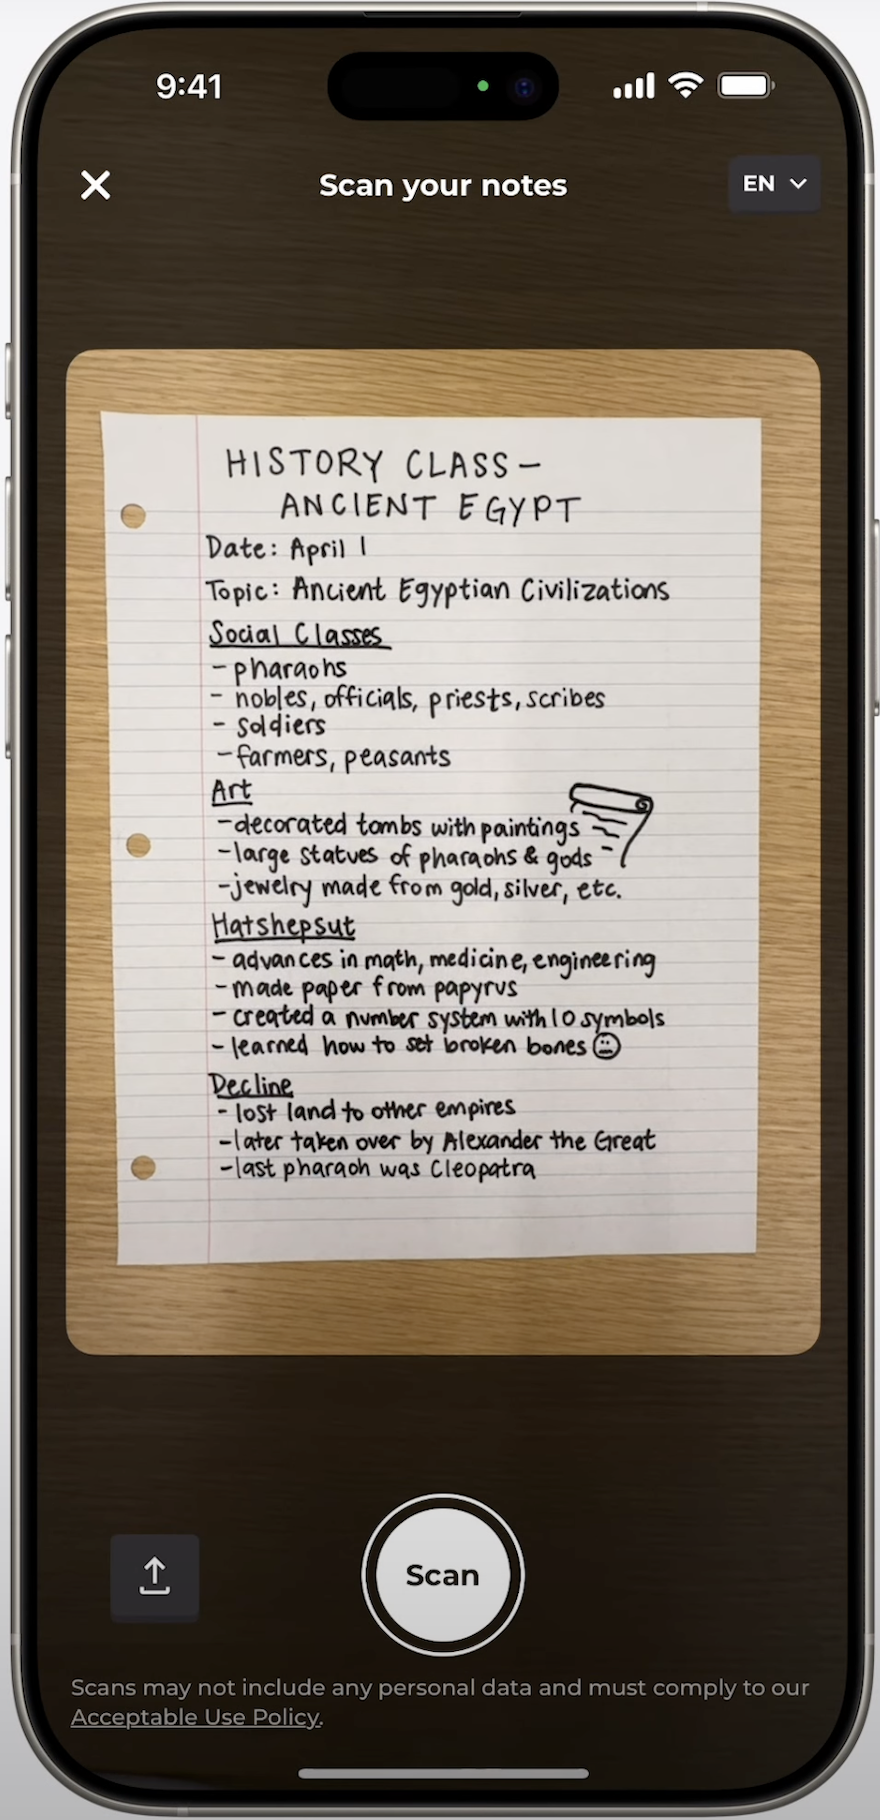 9:41
Scan your notes
EN
HISTORY CLASS-
ANCIENT EGYPT
Date: April 1
Topic: Ancient Egyptian Civilizations
Social Classes
- pharaohs
- nobles, officials, priests, scribes
- soldiers
- farmers, peasants
Art
- decorated tombs with paintings
- large statues of pharaohs & gods
- jewelry made from gold, silver, etc.
Hatshepsut
- advances in math, medicine, engineering
- made paper from papyrus
- created a number system with 10 symbols
- learned how to set broken bones
Decline
- lost land to other empires
- later taken over by Alexander the Great
- last pharaoh was Cleopatra
Scan
Scans may not include any personal data and must comply to our
Acceptable Use Policy.